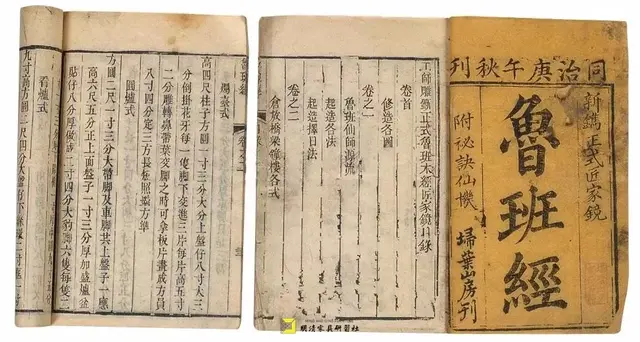 同治庚午秋刊
新鐫正式匠家鏡
魯班經
附祕訣仙機
掃葉山房刊
工師雕斵正式魯班木經匠家鏡目錄
卷首
修造各圖
卷之一
魯班仙師源流
起造各法
起造擇日法
卷之二
倉敖橋梁鐘樓各式
魯班經
卷之二
燭臺式
高四尺柱子方圓一寸三分大分上盤仔八寸大三
分倒掛花牙每一隻脚下交進三片每片高五寸
二分雕轉鼻帶葉交脚之時可拿板片畫成方員
八寸四分定三方長短照墨方準
圓爐式
方圓二尺一寸三分大帶脚及車脚共上盤子一應
高六尺五分正上面盤子一寸三分厚加盛爐盆
貼仔八分厚做成二寸四分大豹脚六隻每隻二
看爐式
九寸 方圓二尺四分大盤仔下絛環二寸框一寸
明清家具研習社